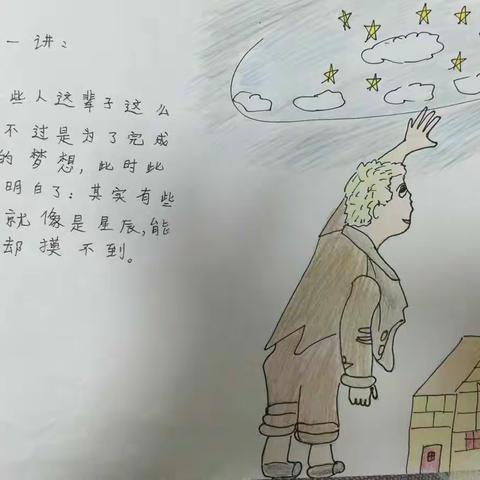 一讲：
些人这辈子这么
不过是为了完成
的梦想，此时此
明白了：其实有些
就像是星辰，能
却摸不到。